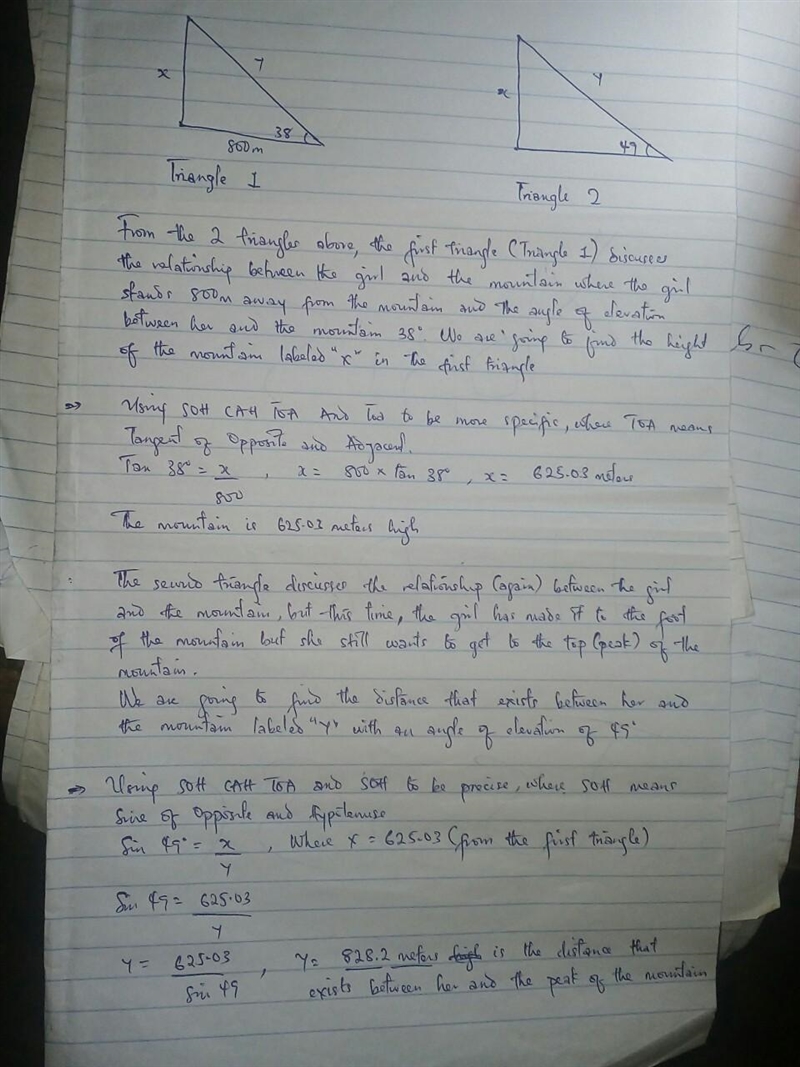 x
y
38
800m
Triangle 1
x
y
49
Triangle 2
From the 2 triangles above, the first triangle (Triangle 1) discusses
the relationship between the girl and the mountain where the girl
stands 800m away from the mountain and the angle of elevation
between her and the mountain 38°. We are going to find the height
of the mountain labeled "x" in the first triangle
⇒ Using SOH CAH TOA And Toa to be more specific, where TOA means
Tangent of Opposite and Adjacent.
Tan 38° = x/800, x = 800 × tan 38°, x = 625.03 meters
The mountain is 625.03 meters high
The second triangle discusses the relationship (again) between the girl
and the mountain, but this time, the girl has made it to the foot
of the mountain but she still wants to get to the top (peak) of the
mountain.
We are going to find the distance that exists between her and
the mountain labeled "Y" with an angle of elevation of 49°
⇒ Using SOH CAH TOA and SOH to be precise, where SOH means
Sine of Opposite and Hypotenuse
Sin 49° = x/y, Where x = 625.03 (from the first triangle)
Sin 49 = 625.03/y
Y = 625.03/Sin 49, Y = 828.2 meters is the distance that
exists between her and the peak of the mountain